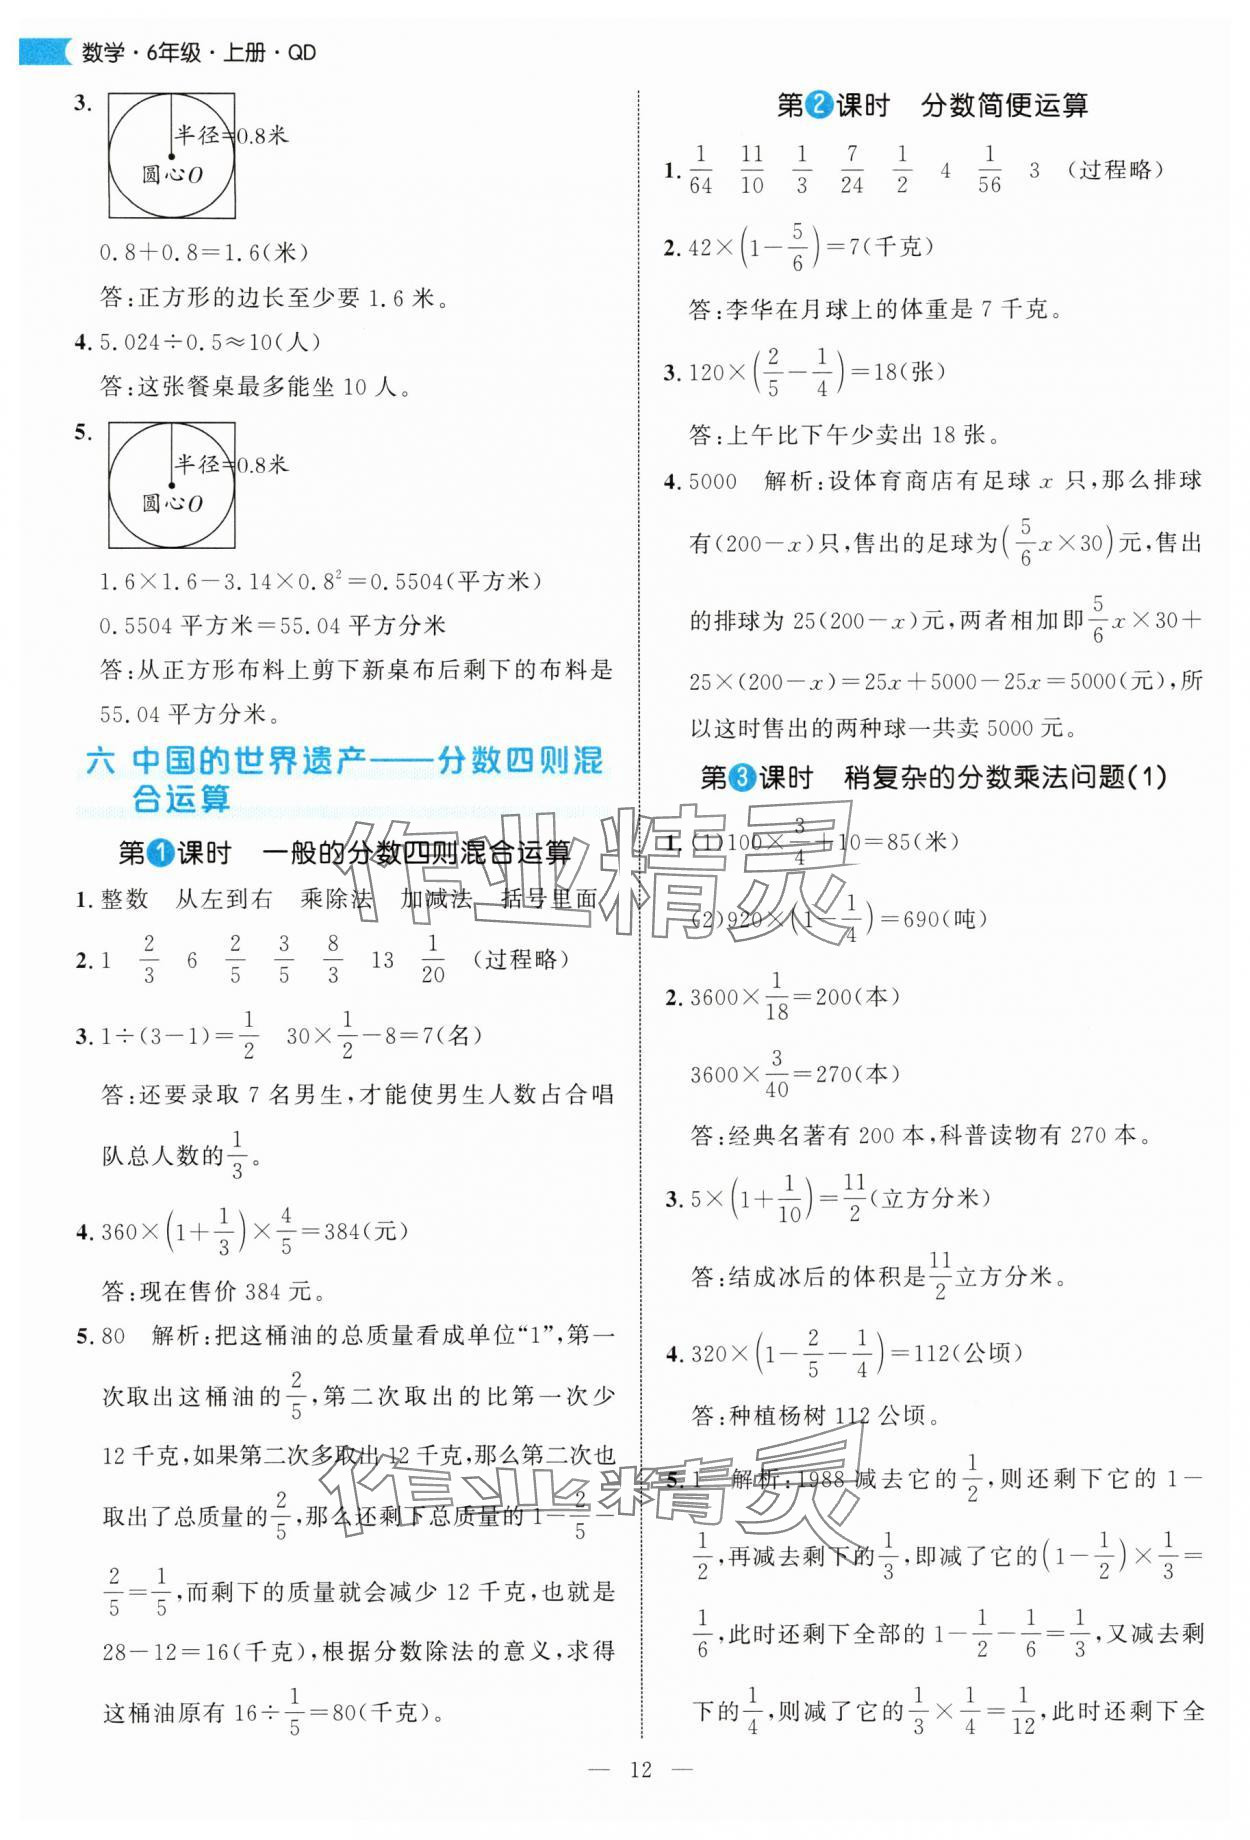 数学·6年级·上册·QD
3.
半径=0.8米
圆心O
0.8+0.8=1.6(米)
答:正方形的边长至少要 1.6 米。
4. 5.024÷0.5≈10(人)
答:这张餐桌最多能坐 10 人。
5.
半径=0.8米
圆心O
1.6×1.6-3.14×0.8²=0.5504(平方米)
0.5504 平方米=55.04 平方分米
答:从正方形布料上剪下新桌布后剩下的布料是
55.04 平方分米。
六 中国的世界遗产——分数四则混
合运算
第1课时 一般的分数四则混合运算
1. 整数 从左到右 乘除法 加减法 括号里面
2. 1 2/3 6 2/5 3/5 8/3 13 1/20 (过程略)
3. 1÷(3-1)=1/2 30×1/2-8=7(名)
答:还要录取 7 名男生,才能使男生人数占合唱
队总人数的1/3。
4. 360×(1+1/3)×4/5=384(元)
答:现在售价 384 元。
5. 80 解析:把这桶油的总质量看成单位“1”,第一
次取出这桶油的2/5,第二次取出的比第一次少
12 千克,如果第二次多取出 12 千克,那么第二次也
取出了总质量的2/5,那么还剩下总质量的 1-2/5-
2/5=1/5,而剩下的质量就会减少 12 千克,即
28-12=16(千克),根据分数除法的意义,求得
这桶油原有 16÷1/5=80(千克)。
第2课时 分数简便运算
1. 1/64 11/10 1/3 7/24 1/2 4 1/56 3 (过程略)
2. 42×(1-5/6)=7(千克)
答:李华在月球上的体重是 7 千克。
3. 120×(2/5-1/4)=18(张)
答:上午比下午少卖出 18 张。
4. 5000 解析:设体育商店有足球 x 只,那么排球
有(200-x)只,售出的足球为(5/6x×30)元,售出
的排球为 25(200-x)元,两者相加即5/6x×30+
25×(200-x)=25x+5000-25x=5000(元),所
以这时售出的两种球一共卖 5000 元。
第3课时 稍复杂的分数乘法问题(1)
1. (1)100×3/4+10=85(米)
(2)920×(1-1/4)=690(吨)
2. 3600×1/18=200(本)
3600×3/40=270(本)
答:经典名著有 200 本,科普读物有 270 本。
3. 5×(1+1/10)=11/2(立方分米)
答:结成冰后的体积是11/2立方分米。
4. 320×(1-2/5-1/4)=112(公顷)
答:种植杨树 112 公顷。
5. 1 解析:1988 减去它的1/2,则还剩下它的 1-
1/2,再减去剩下的1/3,即减了它的(1-1/2)×1/3=
1/6,此时还剩下全部的 1-1/2-1/6=1/3,又减去剩
下的1/4,则减了它的1/3×1/4=1/12,此时还剩下全
— 12 —
作业精灵
作业精灵